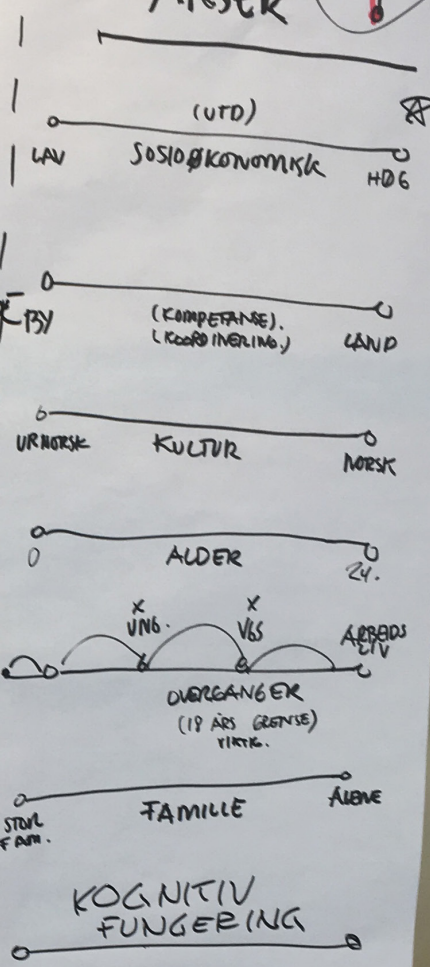 (UTD)
LAV SOSIOØKONOMISK HØG
(KOMPETANSE).
BY (KOORDINERING) LAND
URNORSK KULTUR NORSK
0 ALDER 24.
X X
UNG. VGS ARBEIDS
LIV
OVERGANGER
(18 ÅRS GRENSE)
VIKTIG.
STOR FAMILIE ALENE
FAM.
KOGNITIV
FUNGERING